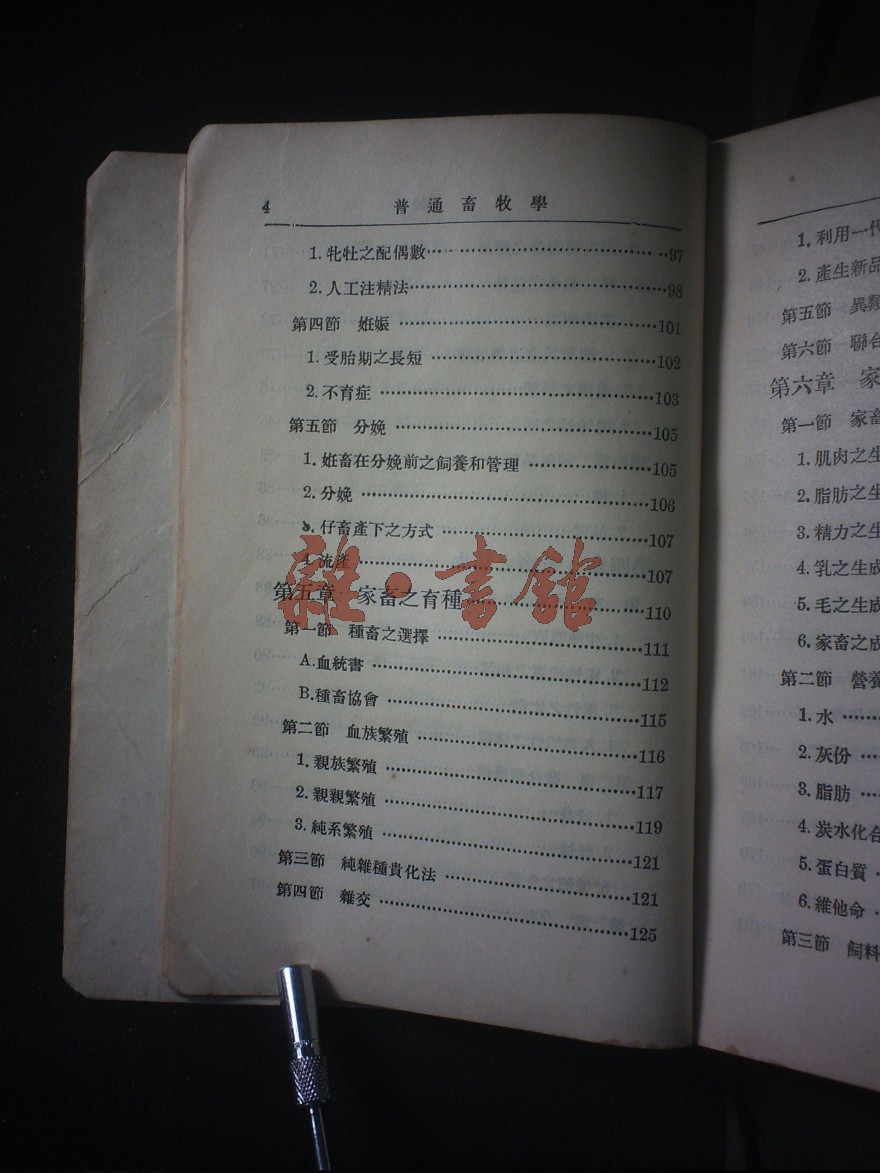 4 普通畜牧學
1. 牝牡之配偶數⋯⋯97
2. 人工注精法⋯⋯98
第四節 姙娠⋯⋯101
1. 受胎期之長短⋯⋯102
2. 不育症⋯⋯103
第五節 分娩⋯⋯105
1. 姙畜在分娩前之飼養和管理⋯⋯105
2. 分娩⋯⋯106
3. 仔畜產下之方式⋯⋯107
4. 流產⋯⋯107
第五章 家畜之育種⋯⋯110
第一節 種畜之選擇⋯⋯111
A. 血統書⋯⋯112
B. 種畜協會⋯⋯115
第二節 血族繁殖⋯⋯116
1. 親族繁殖⋯⋯117
2. 親親繁殖⋯⋯119
3. 純系繁殖⋯⋯121
第三節 純雜種貴化法⋯⋯121
第四節 雜交⋯⋯125
雜·書館
1. 利用一代
2. 產生新品
第五節 異類
第六節 聯合
第六章 家
第一節 家畜
1. 肌肉之生
2. 脂肪之生
3. 精力之生
4. 乳之生成
5. 毛之生成
6. 家畜之成
第二節 營養
1. 水⋯⋯
2. 灰份⋯⋯
3. 脂肪⋯⋯
4. 炭水化合
5. 蛋白質⋯
6. 維他命⋯
第三節 飼料